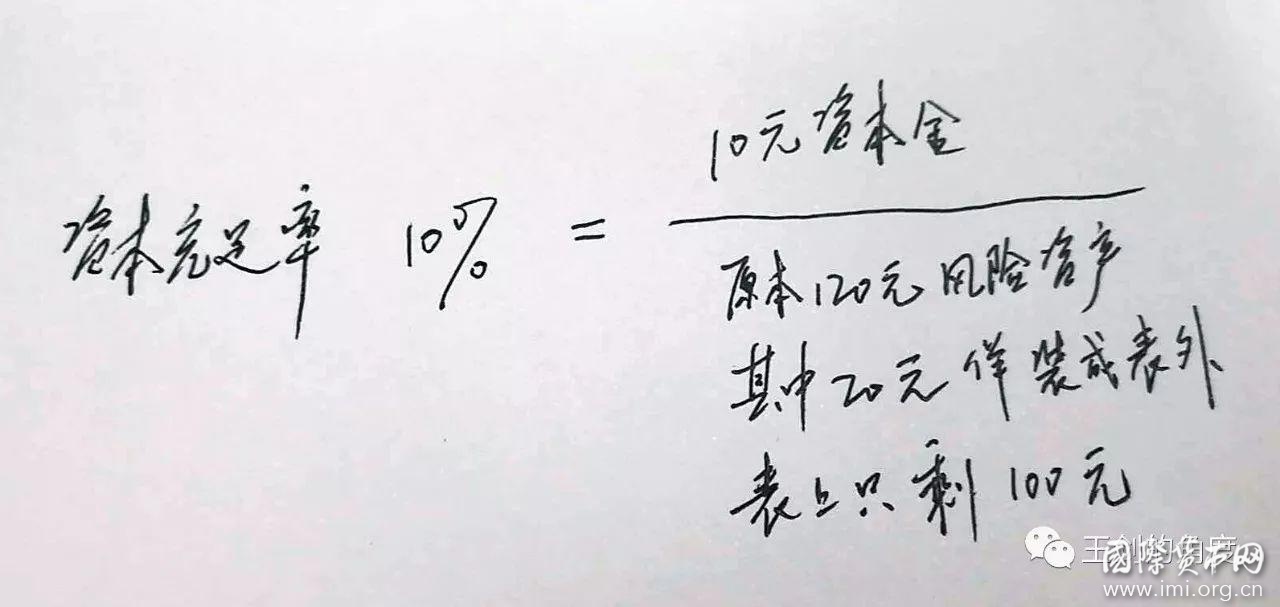 10元资本金
资本充足率 10% =
原本120元风险资产
其中20元佯装成表外
表上只剩100元
王剑的角度
國際货币网
www.imi.org.cn